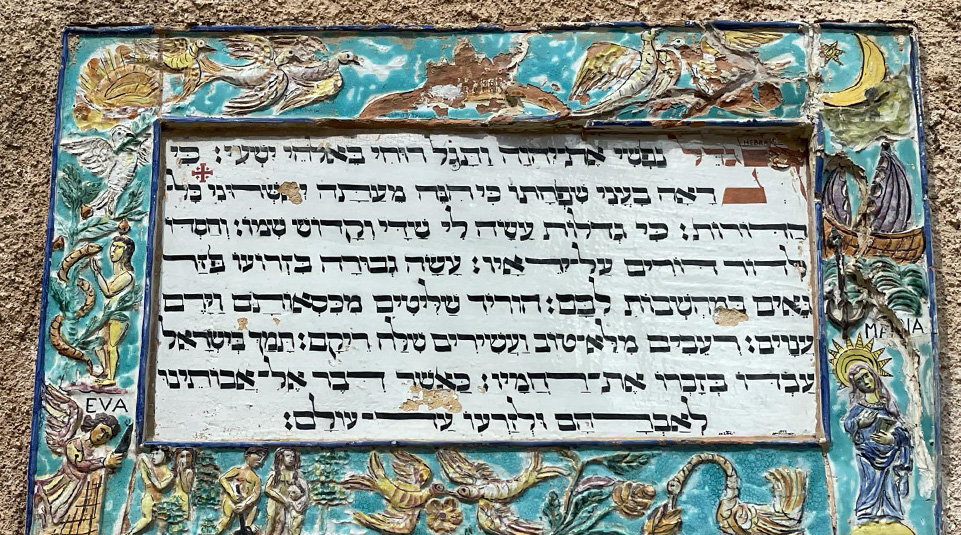 נפשי את־יהוה ותגל רוחי באלהי ישעי: כי
ראה בעני שפחתו כי הנה מעתה
הדורות: כי גדלות עשה לי שדי וקדוש שמו: וחסדו
לדור דורים על־יראיו: עשה גבורה בזרועו פזר
גאים במחשבות לבם: הוריד שליטים מכסאותם וירם
עניים: רעבים מלא־טוב ועשירים שלח ריקם: תמך בישראל
עבדו בזכרו את־רחמיו: כאשר דבר אל־אבותינו
לאברהם ולזרעו עד־עולם:
MARIA
EVA